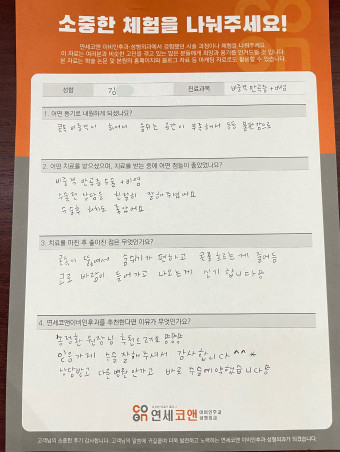 소중한 체험을 나눠주세요!
연세코앤이비인후과·성형외과에서 경험했던 시술 과정이나 체험을 나눠주세요.
이 자료는 여러분과 비슷한 고민을 겪고 있는 많은 분들에게 희망과 용기를 안겨드릴 것 입니다.
본 자료는 학술 논문 및 본원의 홈페이지와 블로그 자료 등 마케팅 자료로도 활용할 수 있습니다.
성함 김 진료과목 비중격 만곡증 + 비염
1. 어떤 동기로 내원하게 되셨나요?
콧속 비중격이 휘어서 숨쉬는 공간이 부족해서 등등 불편함으로
2. 어떤 치료를 받으셨으며, 치료를 받는 중에 어떤 점들이 좋았었나요?
비중격 만곡증 수술 + 비염
수술전 상담등 친절히 잘해주셨어요
수술후 처치도 좋았어요
3. 치료를 마친 후 좋아진 점은 무엇인가요?
콧속이 뚫려서 숨쉬기가 편하고 콧물 흐르는게 줄어듬
코로 바람이 들어가고 나오는게 신기 합니다
4. 연세코앤이비인후과를 추천한다면 이유가 무엇인가요?
원장님 추천드려요 짱짱
믿음가게 수술 잘해주셔서 감사합니다 ^^
상담받고 다른병원 안가고 바로 수술예약했습니다
CO&N 연세코앤 이비인후과 성형외과
고객님의 소중한 후기 감사합니다. 고객님의 말씀에 귀 기울여 더욱 발전하고 노력하는 연세코앤 이비인후과 성형외과가 되겠습니다.